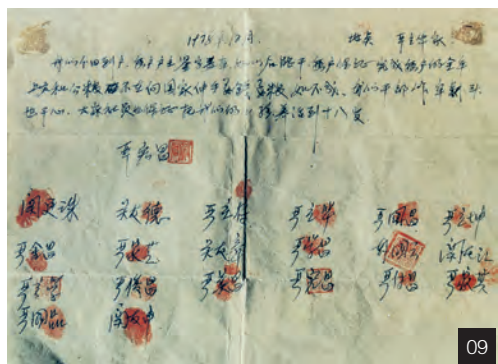 1978年12月 地点 严立华家
我们分田到户，每户户主签字盖章，如以后能干，每户保证完成每户的全年
上交和公粮，不在向国家伸手要钱要粮，如不成，我们干部作牢刹头
也干心，大家社员也保证把我们的小孩养活到十八岁。
严宏昌
关廷珠 关友德 严立符 严立华 严国昌 严立坤
严金昌 严家芝 关友章 严学昌 韩国云 关友江
严立学 严俊昌 严美昌 严宏昌 严付昌 严家其
严国品 关友申
09